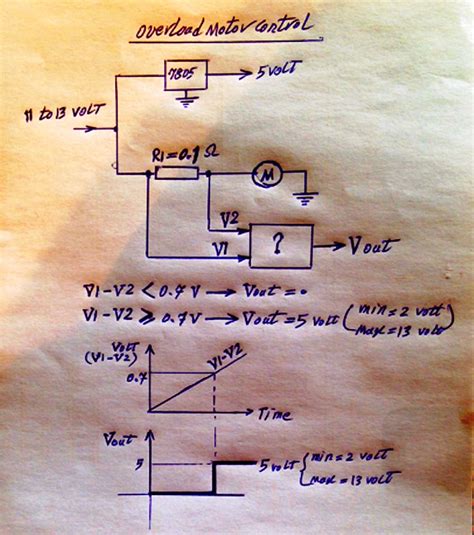 overload Motor control
7805
5 volt
11 to 13 volt
R1=0.1 Ω
M
V2
V1
?
Vout
V1-V2 < 0.7 V → Vout = 0
V1-V2 ≥ 0.7 V → Vout = 5 volt (min = 2 volt
max = 13 volt)
Volt
(V1-V2)
V1-V2
0.7
Time
Vout
5
5 volt {min = 2 volt
max = 13 volt